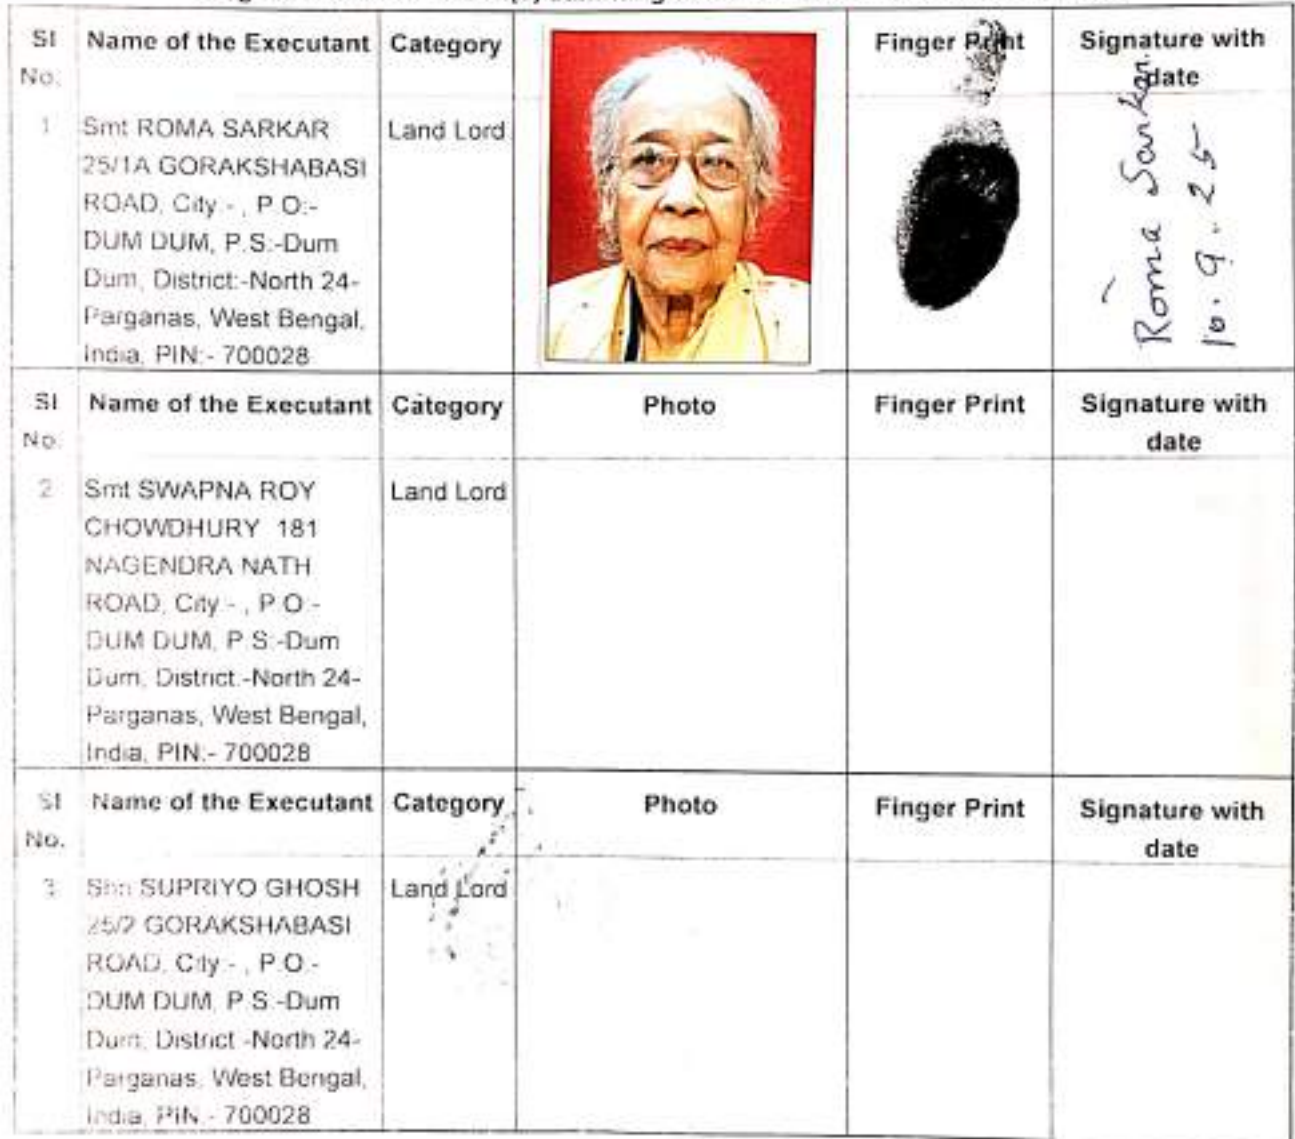 Sl No. Name of the Executant Category Finger Print Signature with date
1 Smt ROMA SARKAR Land Lord
25/1A GORAKSHABASI
ROAD, City:- , P.O:-
DUM DUM, P.S:-Dum
Dum, District:-North 24-
Parganas, West Bengal,
India, PIN:- 700028
Roma Sarkar
10.9.25
Sl No. Name of the Executant Category Photo Finger Print Signature with date
2 Smt SWAPNA ROY Land Lord
CHOWDHURY 181
NAGENDRA NATH
ROAD, City:- , P.O:-
DUM DUM, P.S:-Dum
Dum, District:-North 24-
Parganas, West Bengal,
India, PIN:- 700028
Sl No. Name of the Executant Category Photo Finger Print Signature with date
3 Shri SUPRIYO GHOSH Land Lord
25/2 GORAKSHABASI
ROAD, City:- , P.O:-
DUM DUM, P.S:-Dum
Dum, District:-North 24-
Parganas, West Bengal,
India, PIN:- 700028